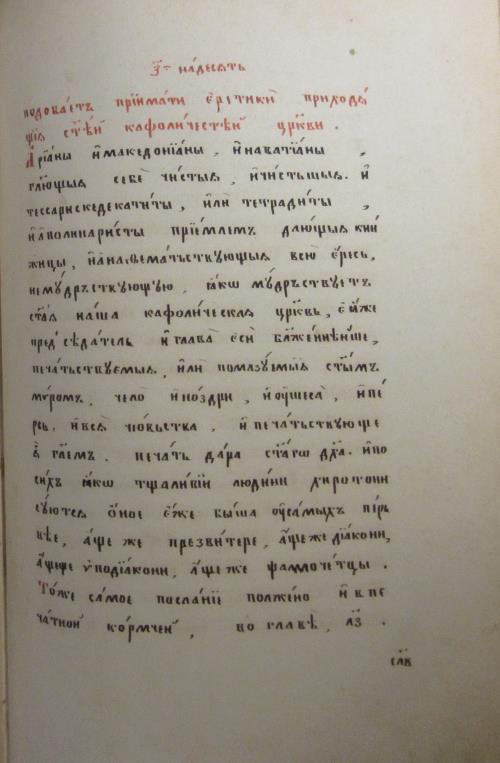 з҃ нáдесять
подобáетъ прїимáти є҆ретики̑ приходѧ́
щїѧ ст҃ѣ́й каѳоли́честѣй цр҃кви .
А҆рїáны и҆македонїáны , и҆наватїáны ,
гл҃ющыѧ себѐ чи́стыѧ , и҆чи́стѣшыѧ . и҆
тессарискедекати́ты , и҆лѝ тетради́ты ,
и҆а҆полинари́сты прїе́млемъ даю́щыѧ кни́
жицы , и҆а҆наѳемáтьствующыѧ всю̀ є҆́ресь ,
немꙋ́дрьствующую , ꙗ҆́кѡ мꙋ́дръствуетъ
ст҃áѧ нáша каѳоли́ческаѧ цр҃ковь , є҆йже
предсѣдáтель и҆главà є҆сѝ бл҃же́ннѣйше ,
печáтьствуемыѧ , и҆лѝ помазꙋ́емыѧ ст҃ы́мъ
мѵ́ромъ . челò и҆но́здри , и҆ѹ҆шесà , и҆пе́
рси . и҆всѧ̑ чю́вьства . и҆печáтьствующе
ѧ҆̀ гл҃емъ . печáть дáра ст҃áгѡ дх҃а . и҆по
си́хъ ꙗ҆́кѡ тщали́вїи лю́дини хиротони
сꙋ́ютсѧ о҆́ное є҆́же бы́ша ѹ҆сáмыхъ пе́рь
вѣе , а҆́ще же презви́тере , а҆́щеже дїáкони ,
а҆́щеже ѵ҆подїáкони , а҆́ще же ѱалмоче́тцы .
То́же сáмое послáнїе поло́жено и҆ в пе
чáтной ко́рмчей , во главѣ̀ , л҃з .
слв